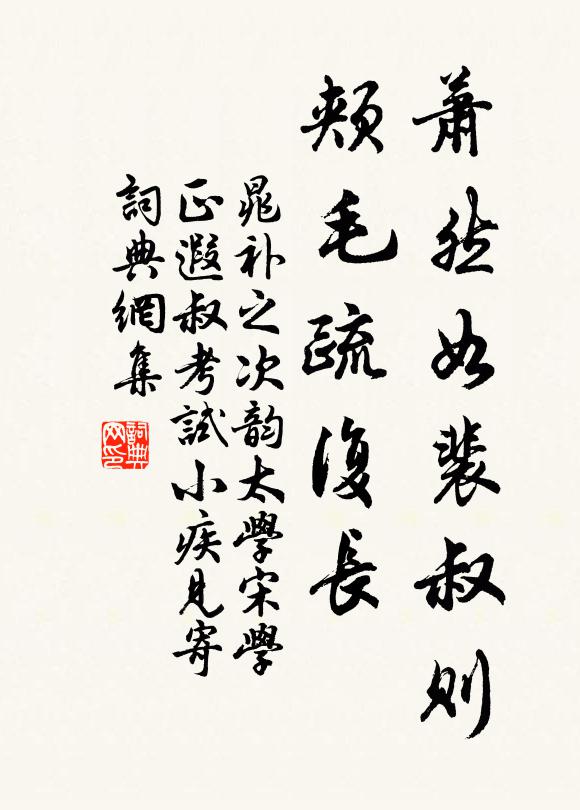 蕭然如裴叔則
頰毛疏復長
晁补之次韵太學宋學
正遐叔考試小疾見寄
詞典網集
詞典网印